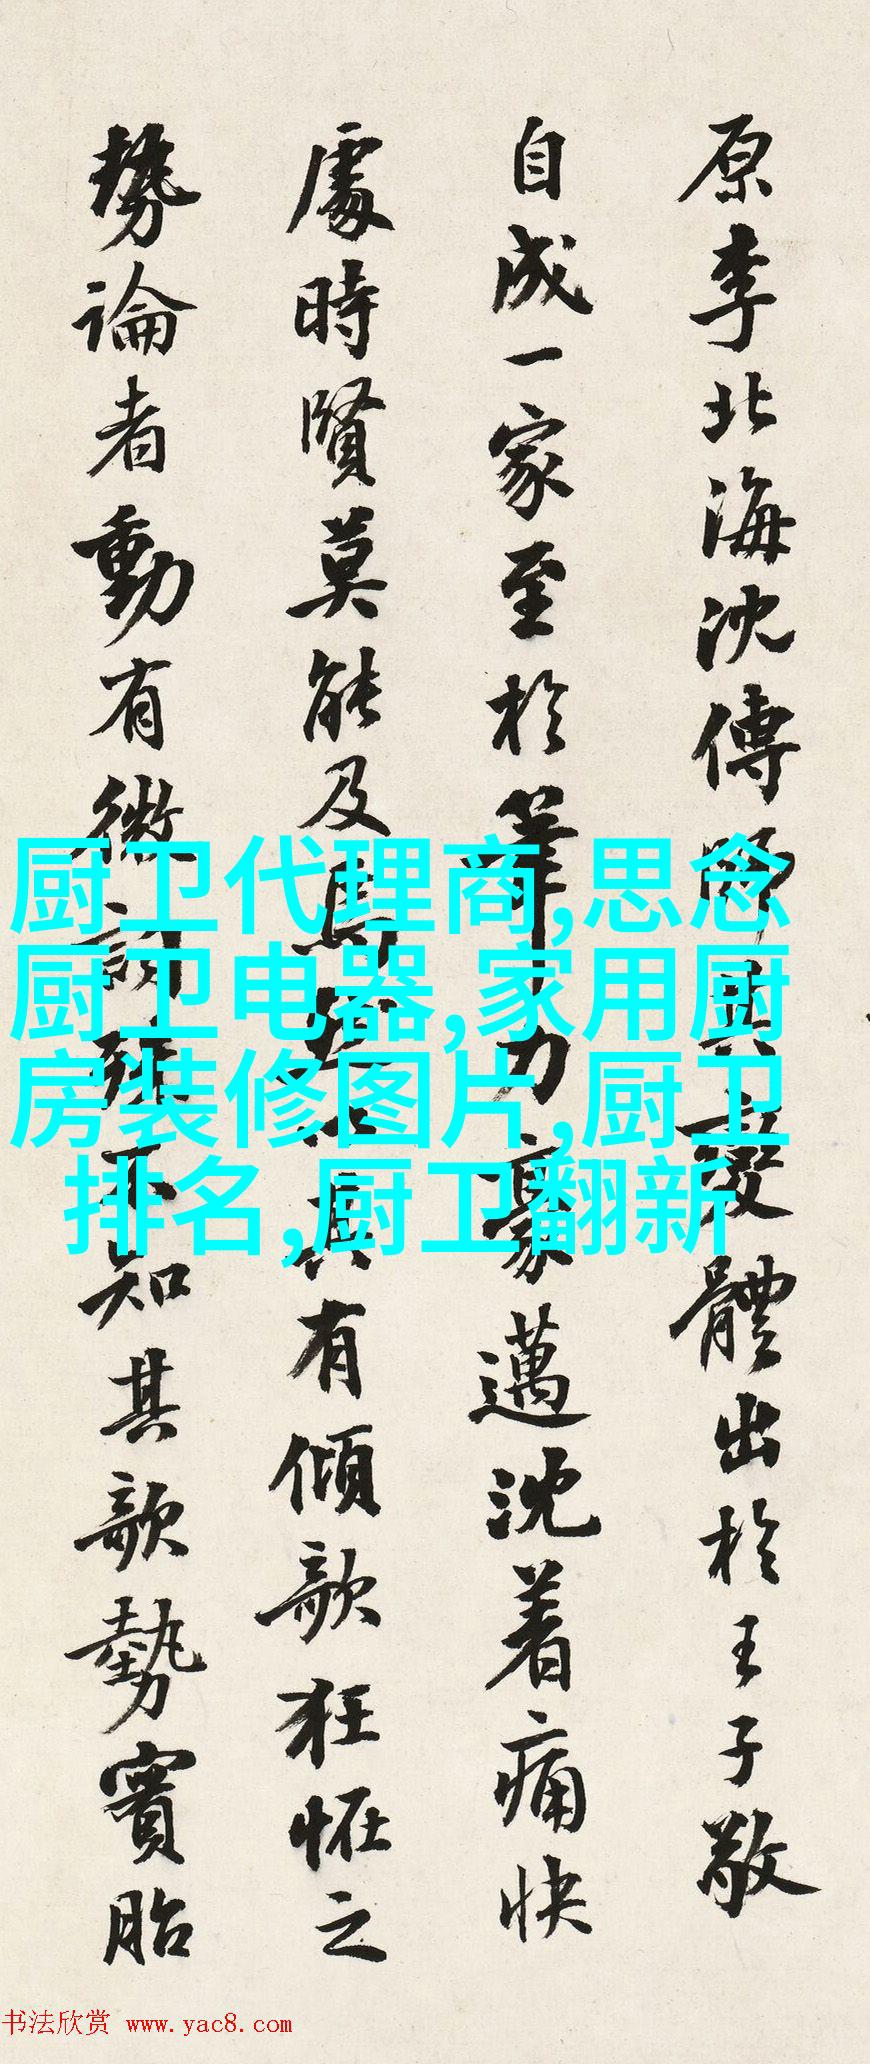 原李北海沈傳師其變體出於王子敬
自成一家至於筆力豪邁沈着痛快
處時賢莫能及馬 具有傾欹狂怪之
勢論者動有微詞殊不知其欹勢實胎
厨卫代理商,思念
厨卫电器,家用厨
房装修图片,厨卫
排名,厨卫翻新
书法欣赏 www.yac8.com